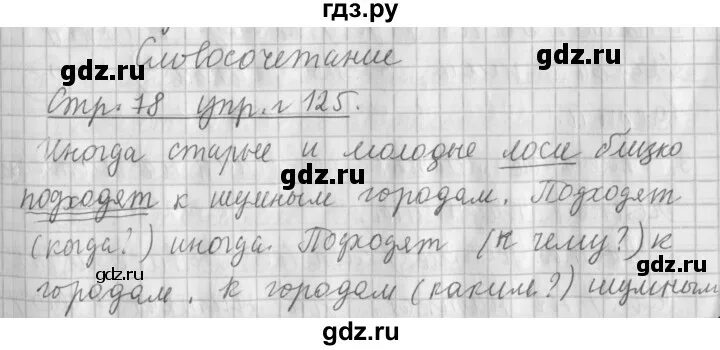 гдз.ру
Словосочетание
Стр. 78 упр. г 125.
Иногда старые и молодые лоси близко
подходят к шумным городам. Подходят
(когда?) иногда. Подходят (к чему?) к
городам. к городам (каким?) шумным
gdz.ru gdz.ru
gdz.ru gdz.ru
gdz.ru gdz.ru
gdz.ru gdz.ru
gdz.ru